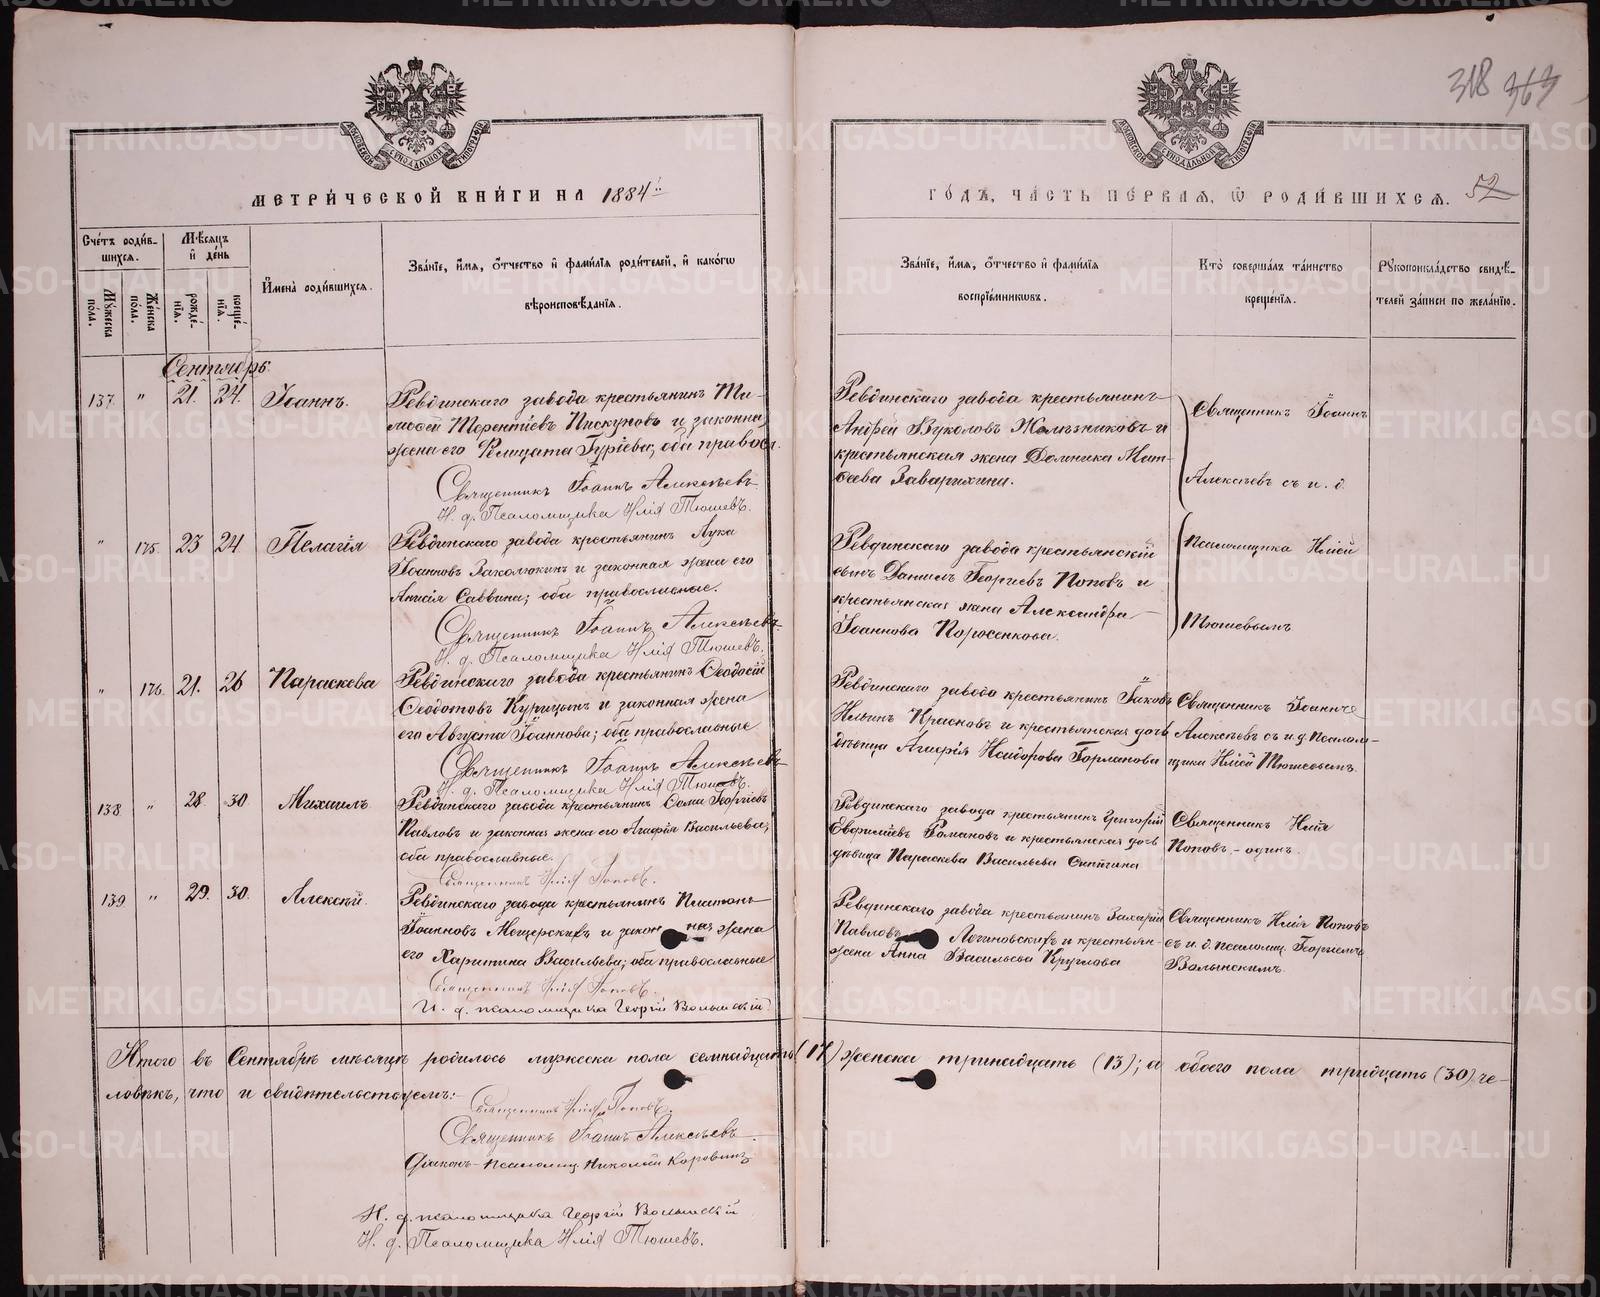 318 363
МЕТРИ́ЧЕСКОЙ КНИ́ГИ НА 1884й
ГО́ДЪ, ЧА́СТЬ ПЕ́РВАЯ, Ѡ РОДИ́ВШИХСЯ. 52
Сче́тъ роди́вшихся.
Мѣ́сяцъ и́ де́нь
Му́жеска по́ла.
Же́нска по́ла.
рожде́нїя.
креще́нїя.
И҆мена̀ роди́вшихся.
Зва́нїе, и҆́мя, ѻ҆́тчество и҆ фами́лїя роди́телей, и҆ како́гѡ
вѣроисповѣ́данїя.
Зва́нїе, и҆́мя, ѻ҆́тчество и҆ фами́лїя
воспрїе́мниковъ.
Кто̀ соверша́лъ та́инство
креще́нїя.
Рꙋкоприкла́дство свидѣ́-
телей за́писи по жела́нїю.
Сентябрь
137. " 21. 24. Іоаннъ.
Ревдинскаго завода крестьянинъ Ти-
моѳей Терентіевъ Пискуновъ и законная
жена его Фелицата Гуріева; оба правосл.
Священникъ Іоаннъ Алексѣевъ
И. д. Псаломщика Илія Тюшевъ.
Ревдинскаго завода крестьянинъ
Андрей Вуколовъ Желѣзниковъ и
крестьянская жена Домника Мат-
ѳеева Заварихина.
Священникъ Іоаннъ
Алексѣевъ съ и. д.
" 175. 23 24 Пелагія
Ревдинскаго завода крестьянинъ Лука
Іоанновъ Заколюкинъ и законная жена его
Анисія Саввина; оба православные.
Священникъ Іоаннъ Алексѣевъ
И. д. Псаломщика Илія Тюшевъ.
Ревдинскаго завода крестьянскій
сынъ Даніилъ Георгіевъ Поповъ и
крестьянская жена Александра
Іоаннова Поросенкова.
псаломщика Иліей
Тюшевымъ
" 176. 21. 26 Параскева
Ревдинскаго завода крестьянинъ Ѳеодосій
Ѳеодотовъ Курицынъ и законная жена
его Августа Іоаннова; оба православные
Священникъ Іоаннъ Алексѣевъ
И. д. Псаломщика Илія Тюшевъ.
Ревдинскаго завода крестьянинъ Іаковъ
Ильинъ Красновъ и крестьянская дочь
дѣвица Агафія Исидорова Горланова
Священникъ Іоаннъ
Алексѣевъ съ и. д. псалом-
щика Иліей Тюшевымъ.
138 " 28 30 Михаилъ
Ревдинскаго завода крестьянинъ Ѳома Георгіевъ
Павловъ и законная жена его Агафія Васильева;
оба православные.
Священникъ Илія Поповъ.
Ревдинскаго завода крестьянинъ Григорій
Евфиміевъ Романовъ и крестьянская дочь
дѣвица Параскева Васильева
Священникъ Илія
Поповъ, – одинъ.
139 " 29. 30. Алексѣй.
Ревдинскаго завода крестьянинъ Платонъ
Іоанновъ Мещерскихъ и законная жена
его Харитина Васильева; оба православные
Священникъ Илія Поповъ.
И. д. псаломщика Георгій Волынскій
Ревдинскаго завода крестьянинъ Захарій
Павловъ Логиновскихъ и крестьян-
жена Анна Васильева Круглова
Священникъ Илія Поповъ
съ и. д. псаломщ. Георгіемъ
Волынскимъ.
Итого въ Сентябрѣ мѣсяцѣ родилось мужеска пола семнадцать (17) женска тринадцать (13); а обоего пола тридцать (30) че-
ловѣкъ, что и свидѣтельствуемъ:-
Священникъ Илія Поповъ.
Священникъ Іоаннъ Алексѣевъ
Діаконъ-псаломщ. Николай Коровинъ
И. д. псаломщика Георгій Волынскій
И. д. Псаломщика Илія Тюшевъ.
METRIKI.GASO-URAL.RU